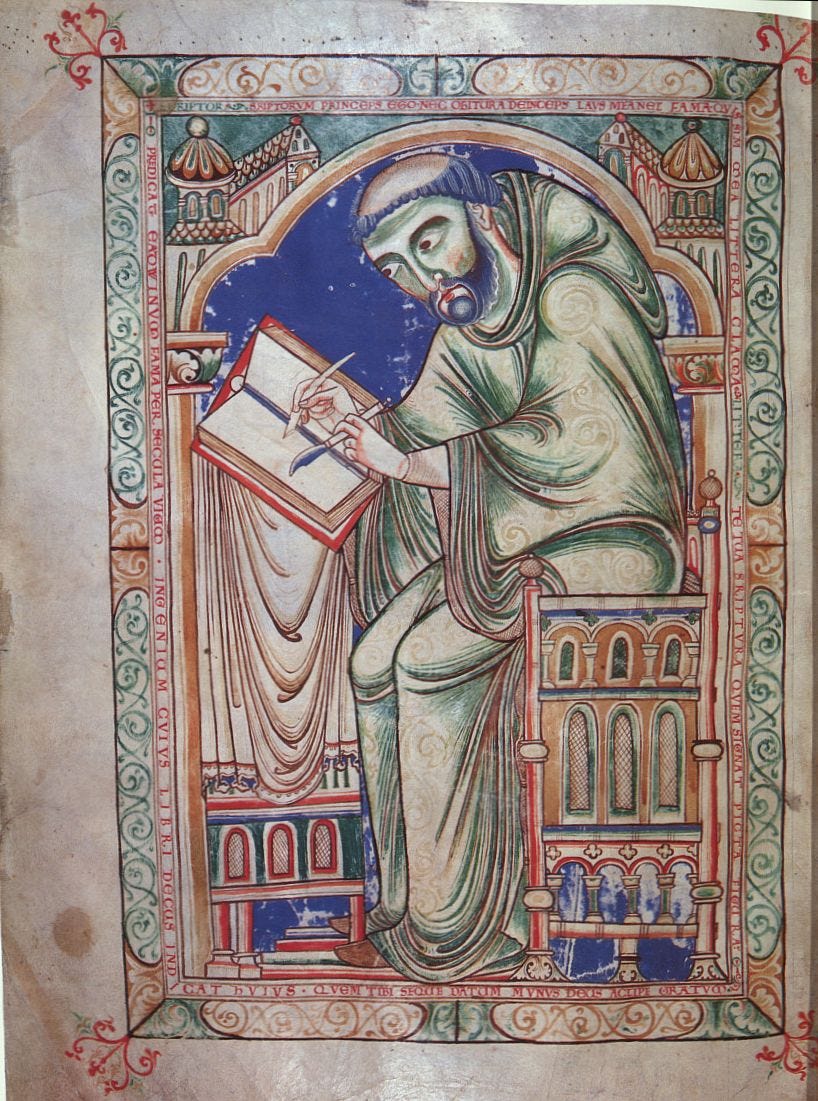 SRIPTORVM PRINCEPS EGO·NEC OBITVRA DEINCEPS LAVS MEA NEC FAMA·QVIS
SIM MEA LITTERA CLAMA· LITTERA· TE TVA SKRIPTVRA QVEM SIGNAT PICTA FIGVRA·
PREDICAT EADWINVM FAMA PER SECVLA VIVVM · INGENIVM CVIVS LIBRI DECVS INDI
CAT HVIVS · QVEM TIBI SEQVE DATVM MVNVS DEVS ACCIPE GRATVM·